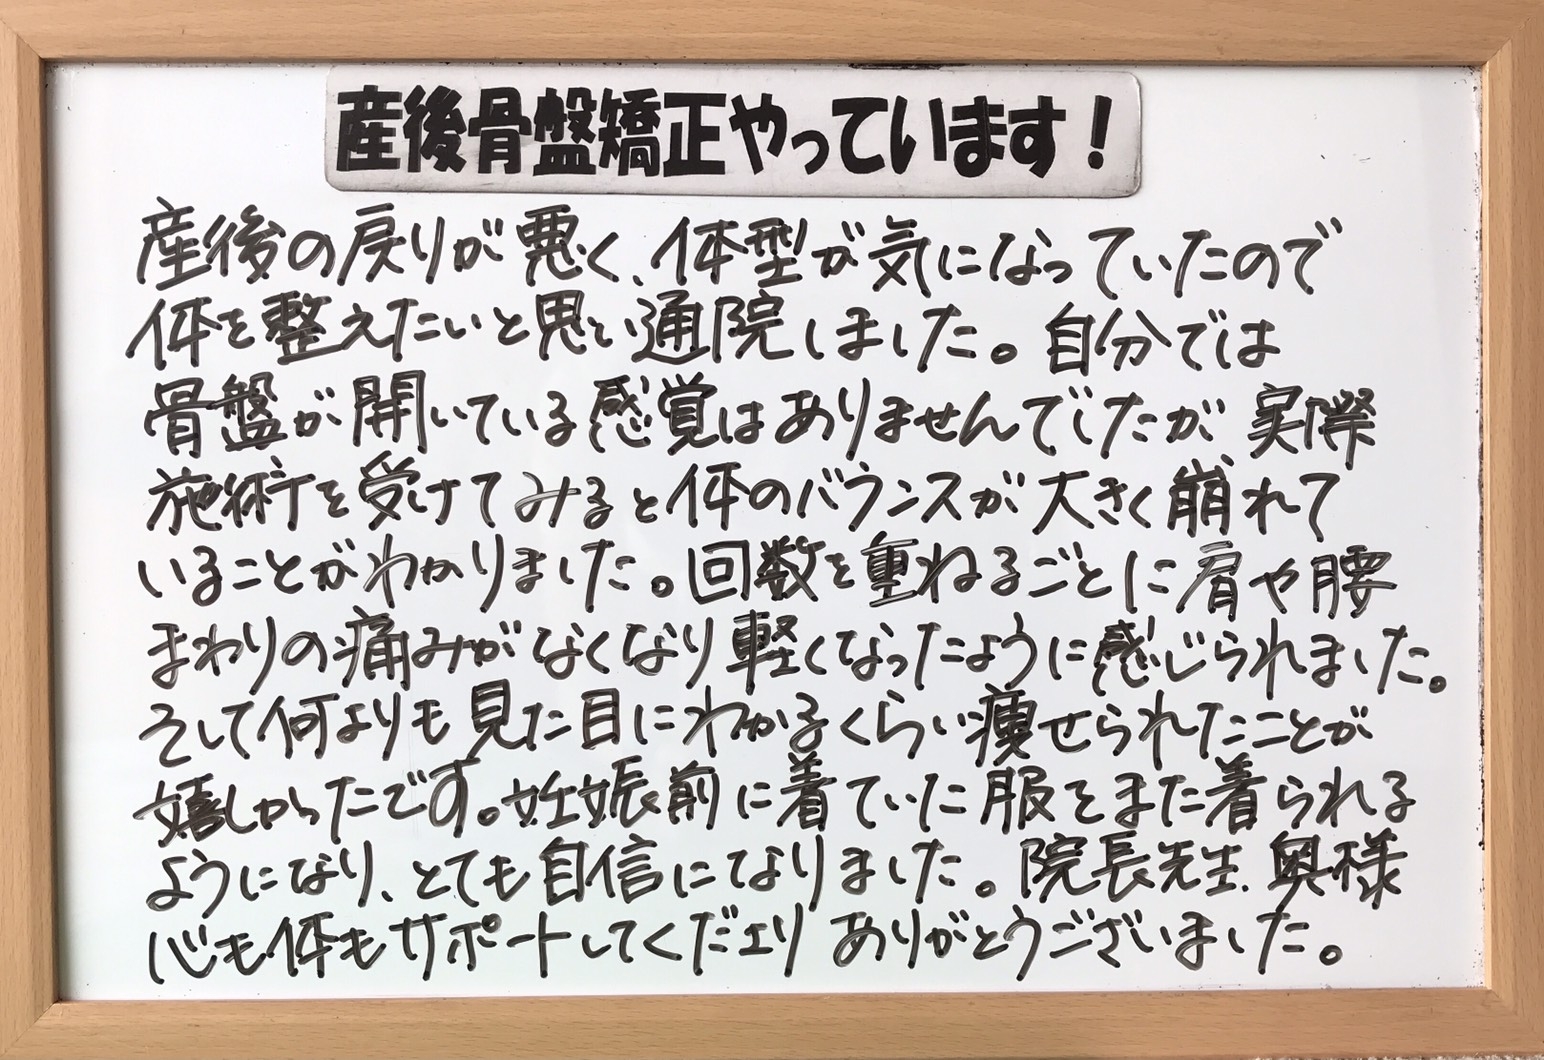 産後骨盤矯正やっています!
産後の戻りが悪く、体型が気になっていたので
体を整えたいと思い通院しました。自分では
骨盤が開いている感覚はありませんでしたが実際
施術を受けてみると体のバランスが大きく崩れて
いることがわかりました。回数を重ねるごとに肩や腰
まわりの痛みがなくなり軽くなったように感じられました。
そして何よりも見た目にわかるくらい痩せられたことが
嬉しかったです。妊娠前に着ていた服をまた着られる
ようになり、とても自信になりました。院長先生、奥様
心も体もサポートしてくださりありがとうございました。